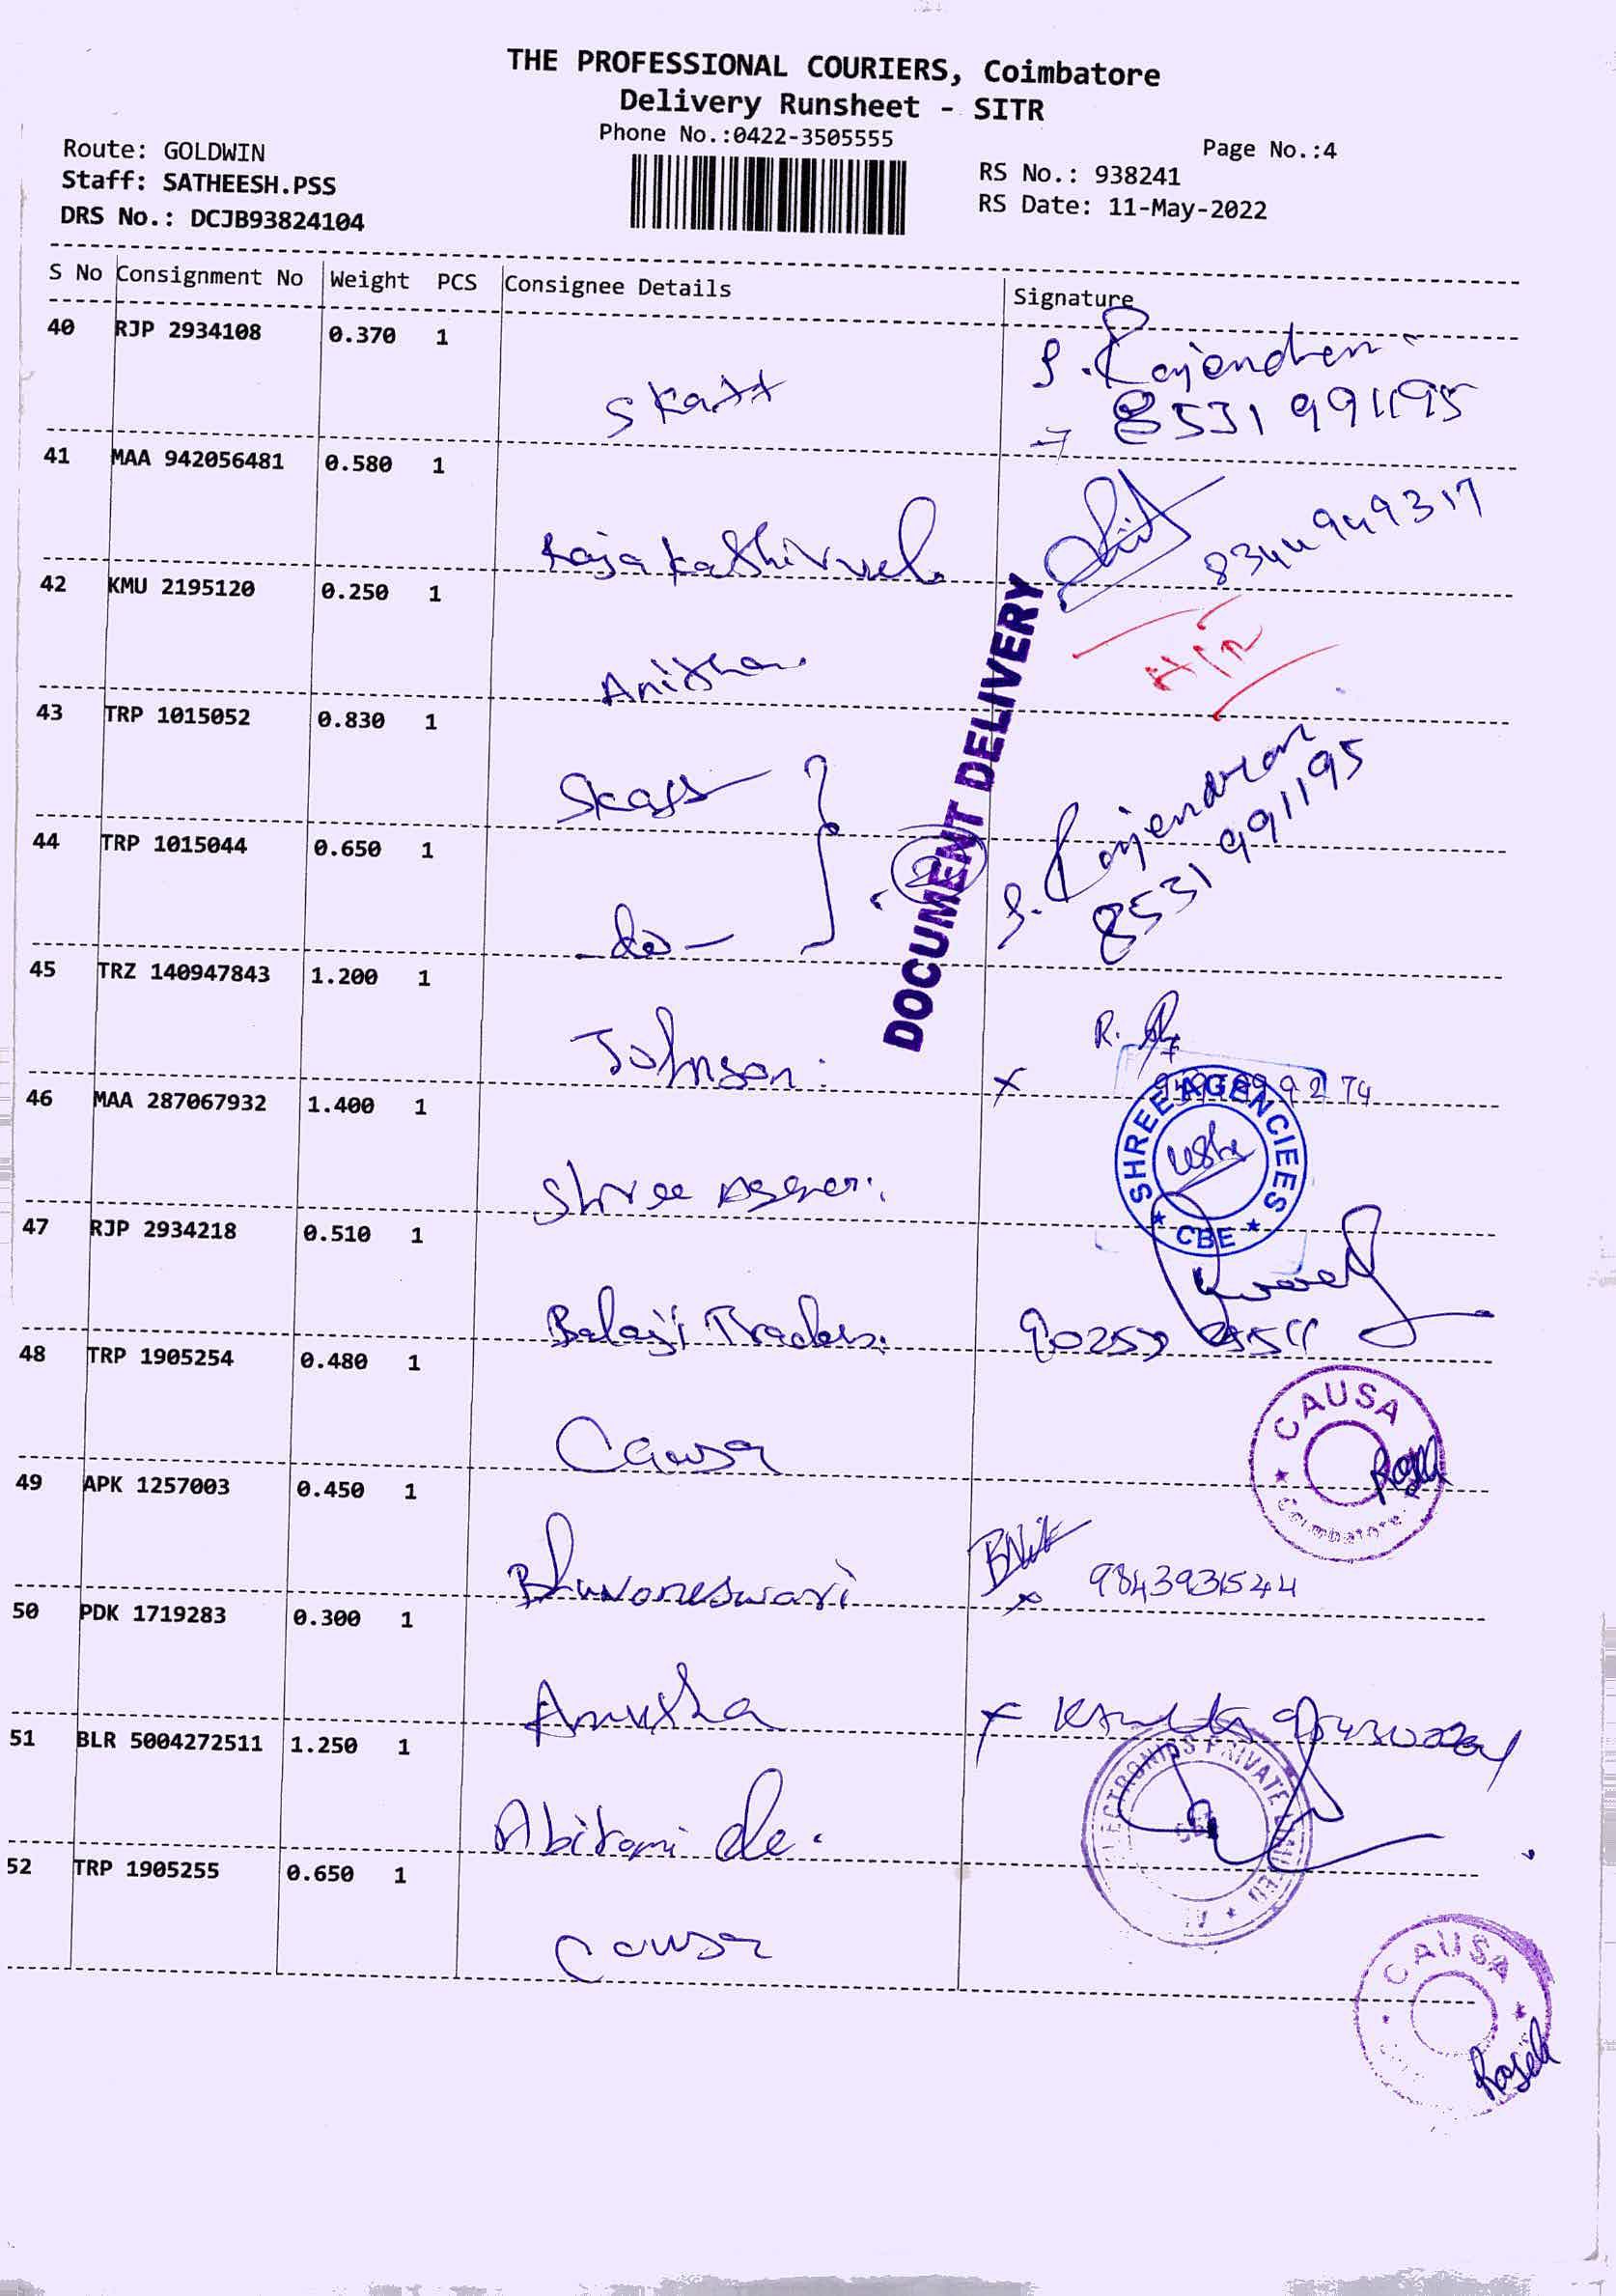 THE PROFESSIONAL COURIERS, Coimbatore
Delivery Runsheet - SITR
Phone No.:0422-3505555
Page No.:4
Route: GOLDWIN
Staff: SATHEESH.PSS
DRS No.: DCJB93824104
RS No.: 938241
RS Date: 11-May-2022
S No Consignment No Weight PCS Consignee Details Signature
40 RJP 2934108 0.370 1
S. Rajendren
8531 991195
41 MAA 942056481 0.580 1
Rajakathirvel
8344949317
42 KMU 2195120 0.250 1
Anitha
43 TRP 1015052 0.830 1
44 TRP 1015044 0.650 1
2
S. Rajendran
8531 991195
-do-
DOCUMENT DELIVERY
45 TRZ 140947843 1.200 1
Johnson
R.
46 MAA 287067932 1.400 1
Shree
SHREE AGENCIEES
CBE
47 RJP 2934218 0.510 1
Balaji Traders
48 TRP 1905254 0.480 1
Causa
CAUSA
Coimbatore
49 APK 1257003 0.450 1
Bhuvoneswari
9843931544
50 PDK 1719283 0.300 1
Anusha
51 BLR 5004272511 1.250 1
Abirami ele.
ELECTRONICS PRIVATE LIMITED
52 TRP 1905255 0.650 1
Causa
CAUSA